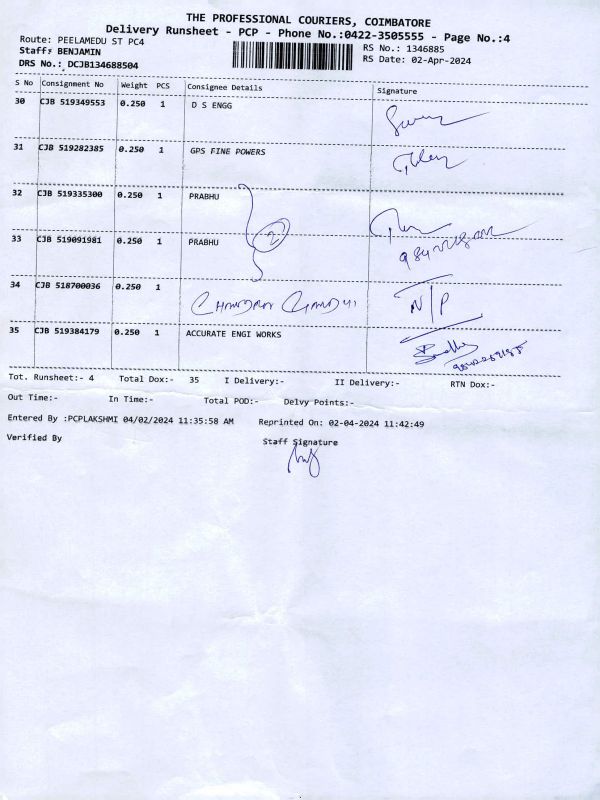 THE PROFESSIONAL COURIERS, COIMBATORE
Delivery Runsheet - PCP - Phone No.:0422-3505555 - Page No.:4
Route: PEELAMEDU ST PC4 RS No.: 1346885
Staff: BENJAMIN RS Date: 02-Apr-2024
DRS No.: DCJB134688504
S No Consignment No Weight PCS Consignee Details Signature
30 CJB 519349553 0.250 1 D S ENGG
31 CJB 519282385 0.250 1 GPS FINE POWERS
32 CJB 519335300 0.250 1 PRABHU
2
33 CJB 519091981 0.250 1 PRABHU
34 CJB 518700036 0.250 1 N/P
35 CJB 519384179 0.250 1 ACCURATE ENGI WORKS
Tot. Runsheet:- 4 Total Dox:- 35 I Delivery:- II Delivery:- RTN Dox:-
Out Time:- In Time:- Total POD:- Delvy Points:-
Entered By :PCPLAKSHMI 04/02/2024 11:35:58 AM Reprinted On: 02-04-2024 11:42:49
Verified By Staff Signature